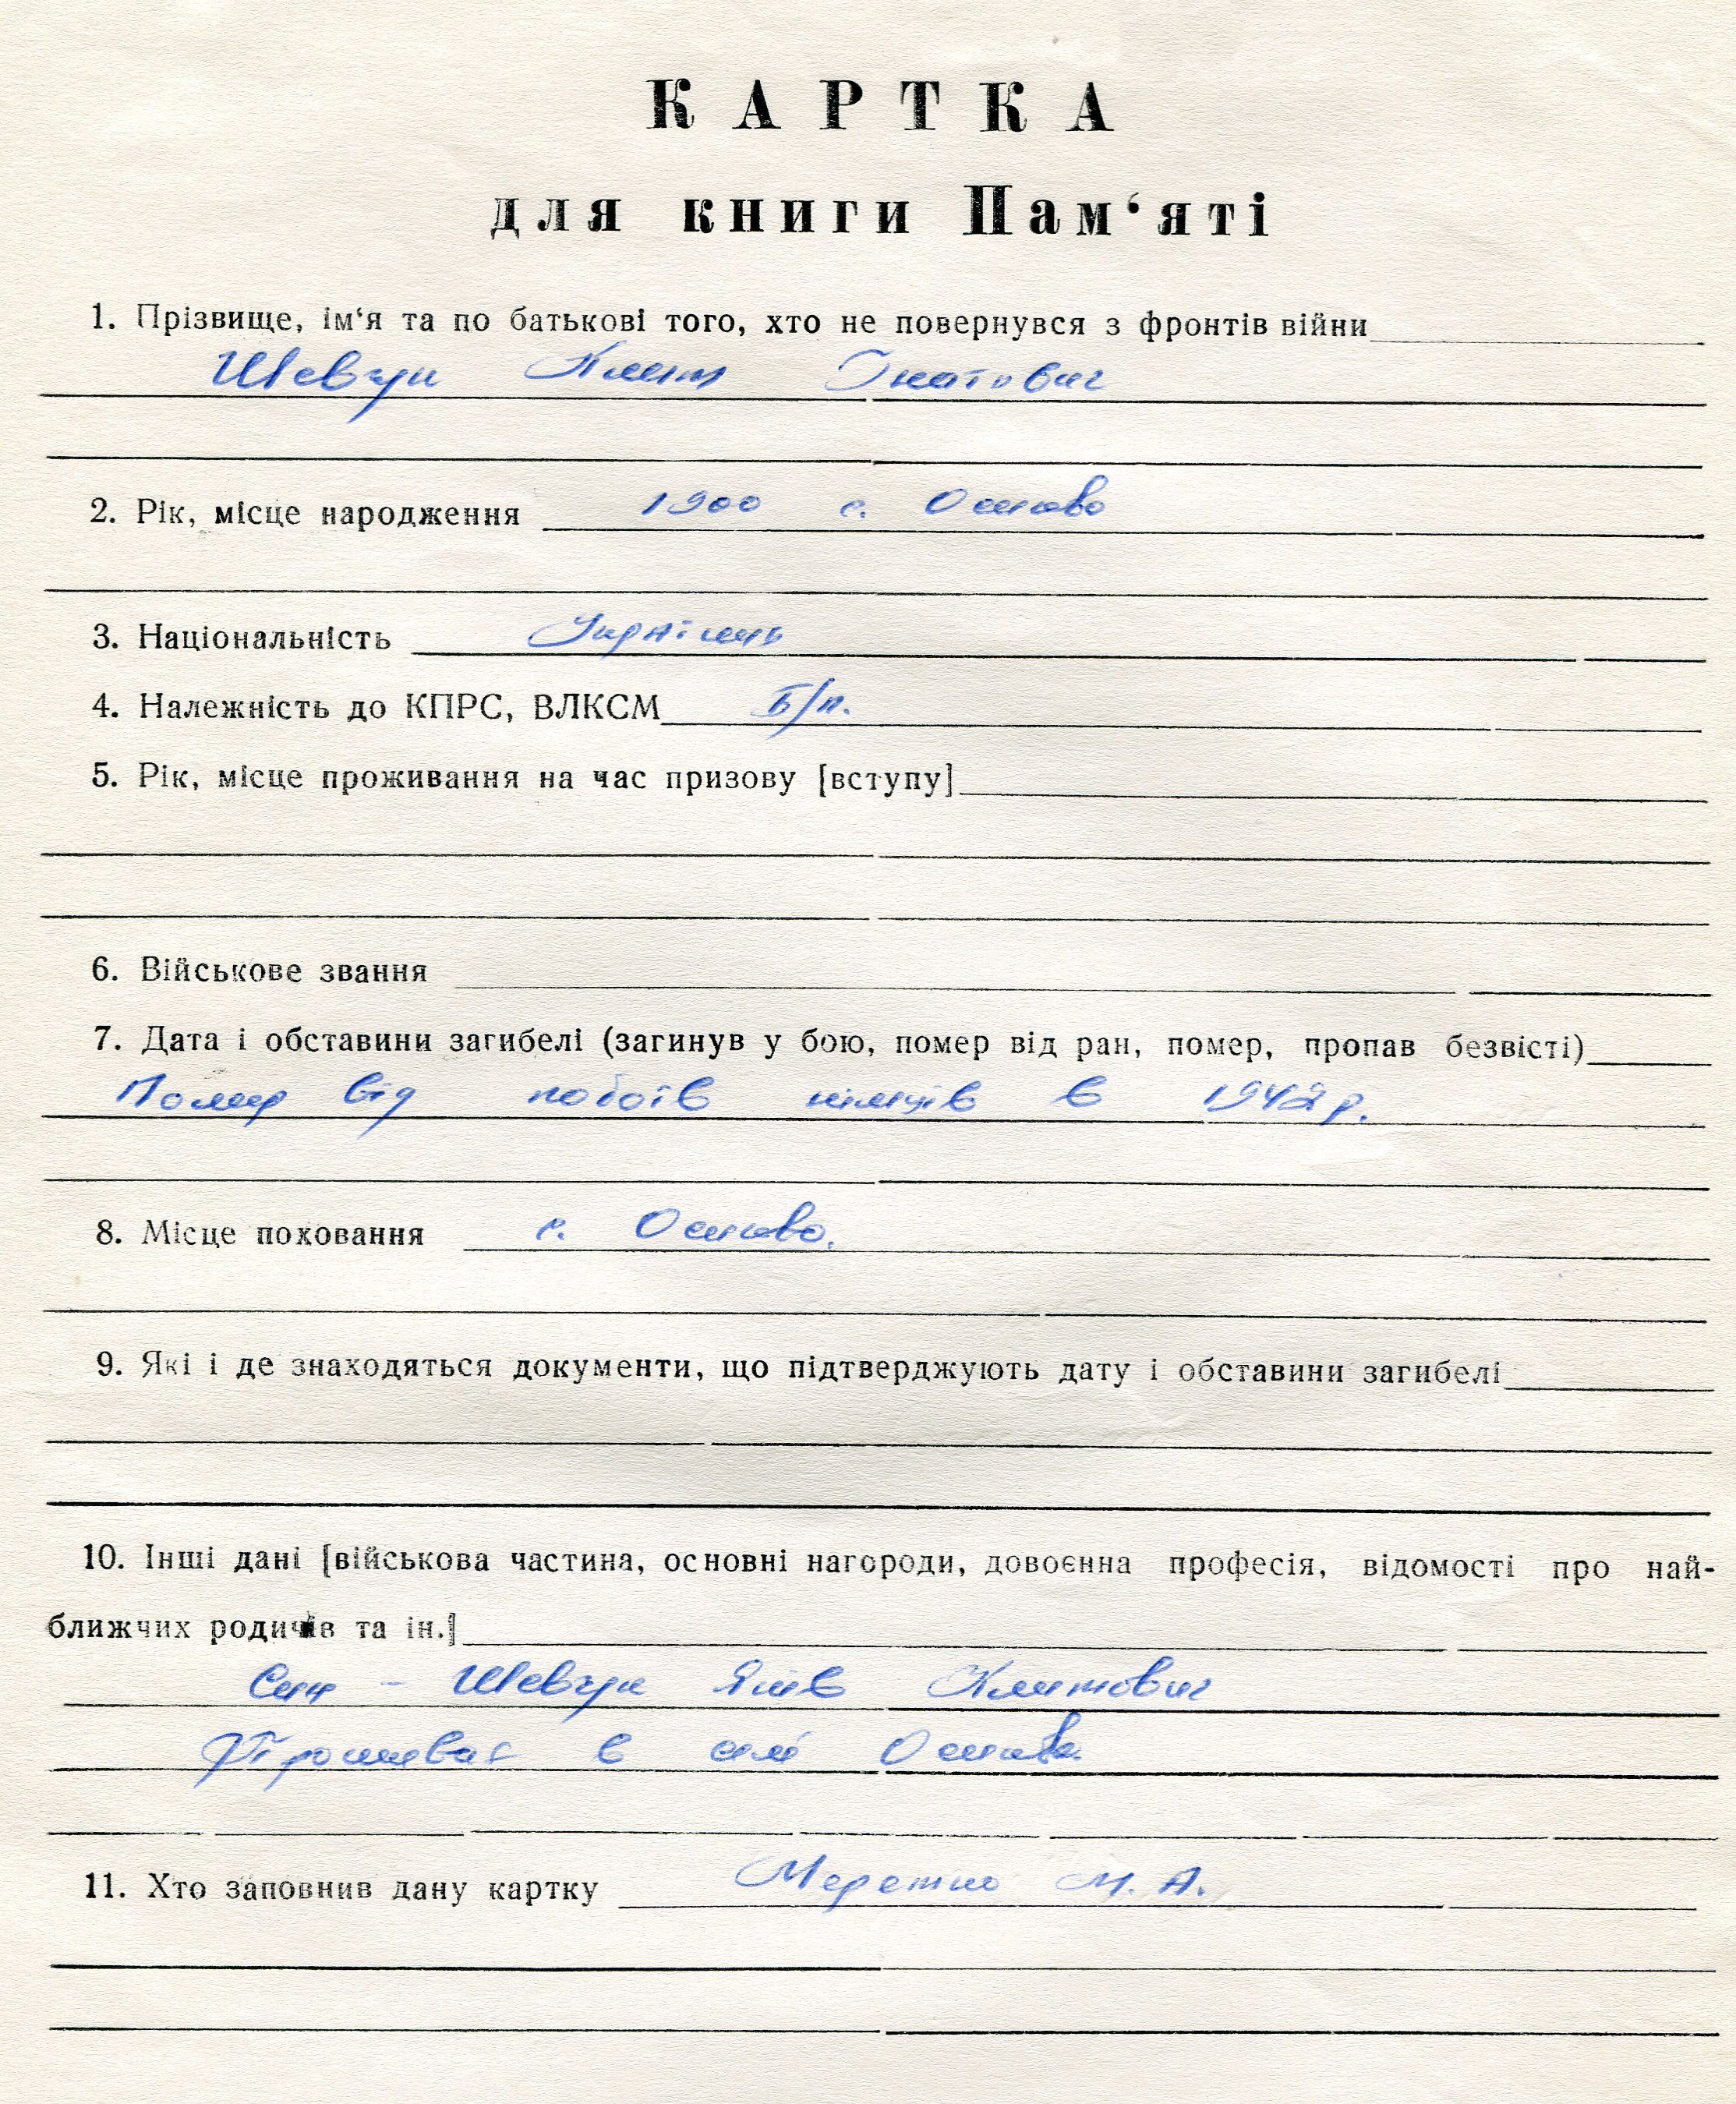 КАРТКА
для книги Пам‘яті
1. Прізвище, ім‘я та по батькові того, хто не повернувся з фронтів війни
Шевчук Климт Гнатович
2. Рік, місце народження 1900 с.
3. Національність Українець
4. Належність до КПРС, ВЛКСМ Б/п.
5. Рік, місце проживання на час призову [вступу]
6. Військове звання
7. Дата і обставини загибелі (загинув у бою, помер від ран, помер, пропав безвісті)
Помер від побоїв німців в 1942 р.
8. Місце поховання с.
9. Які і де знаходяться документи, що підтверджують дату і обставини загибелі
10. Інші дані [військова частина, основні нагороди, довоєнна професія, відомості про най-
ближчих родичів та ін.]
Син - Шевчук Яків Климтович
Проживає в селі
11. Хто заповнив дану картку М. А.